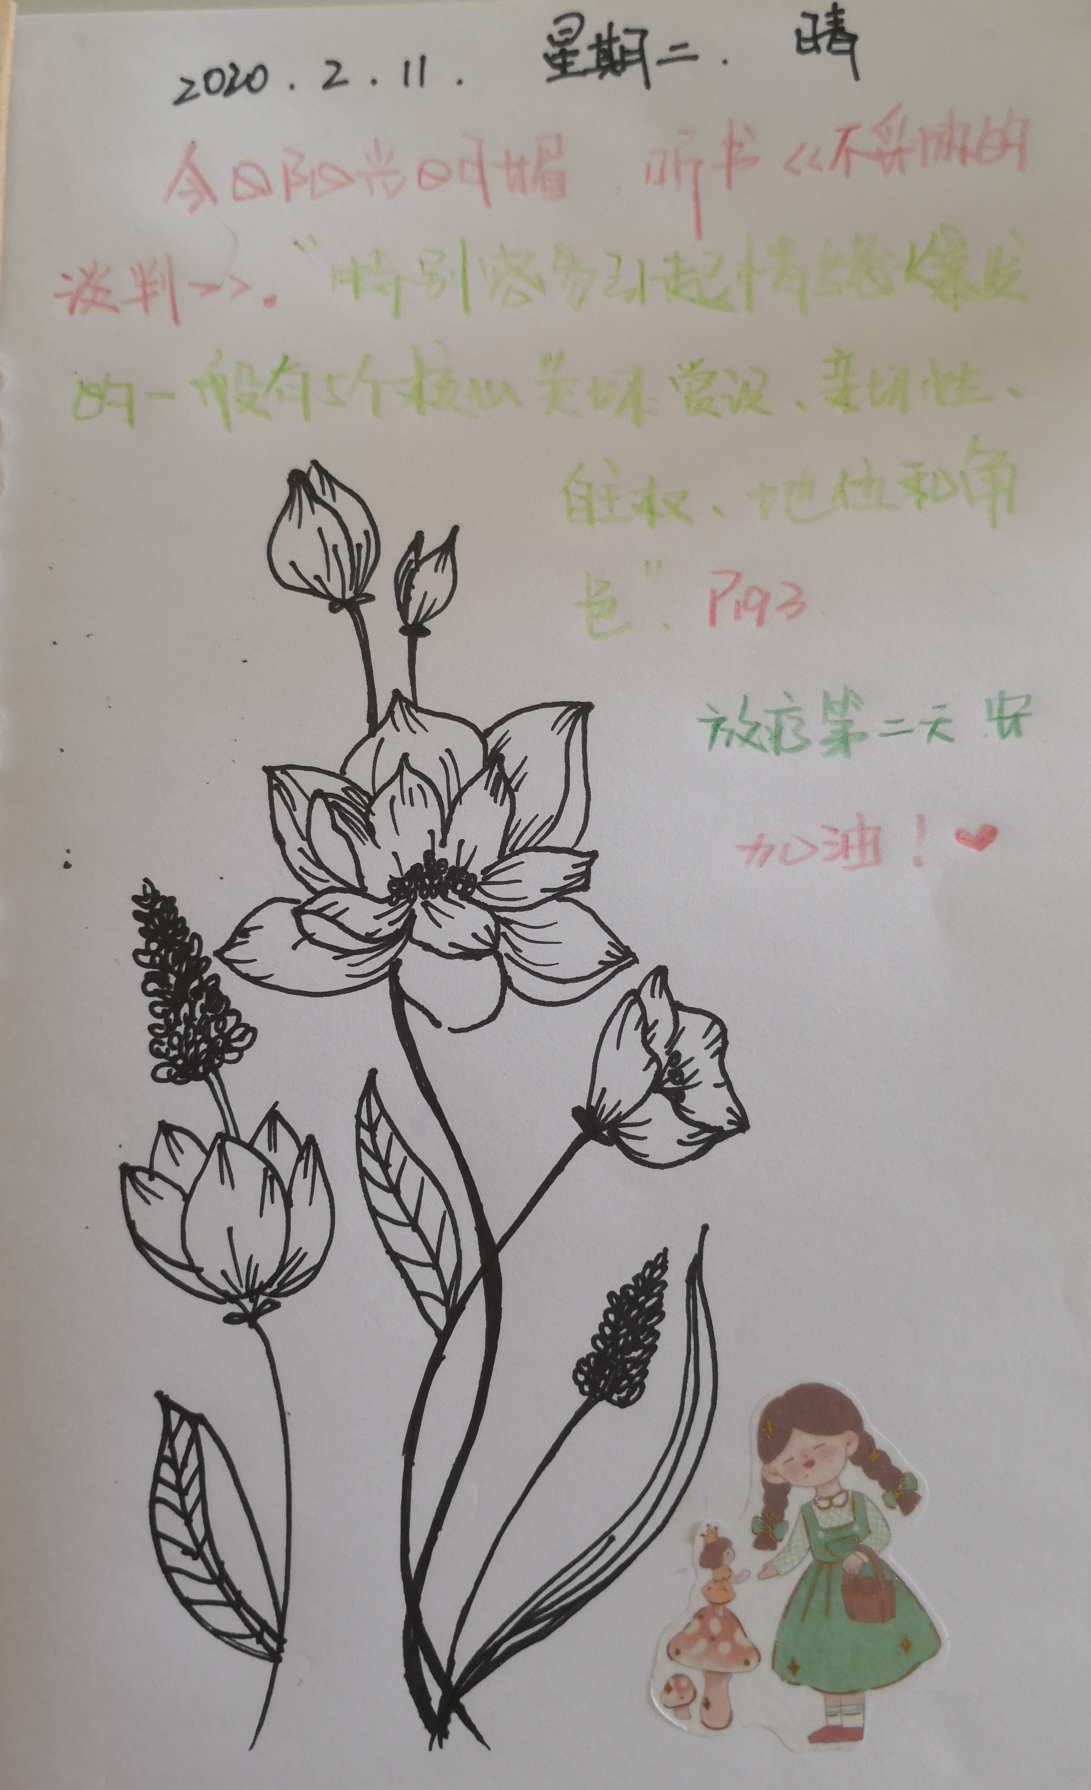 2020.2.11. 星期二. 晴
今日阳光明媚,听书《不妥协的
谈判》。“特别容易引起情绪爆发
的一般有5个核心关切:赏识、亲切性、
自主权、地位和角
色”. P193
放疗第二天 安
加油!❤